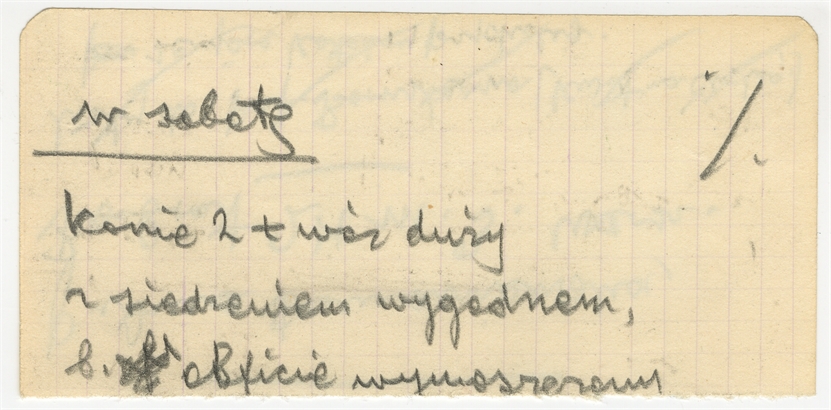 w sobotę
·/.
Konie 2 + wóz duży
z siedzeniem wygodnem,
b. obficie wymoszczony